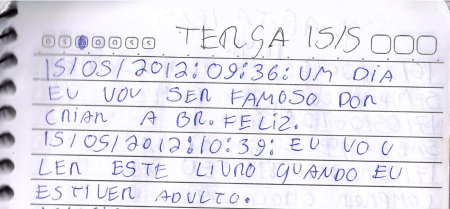 TERÇA 15/5
15/05/2012:09:36: UM DIA
EU VOU SER FAMOSO POR
CRIAR A BR. FELIZ.
15/05/2012:10:39: EU VOU
LER ESTE LIVRO QUANDO EU
ESTIVER ADULTO.